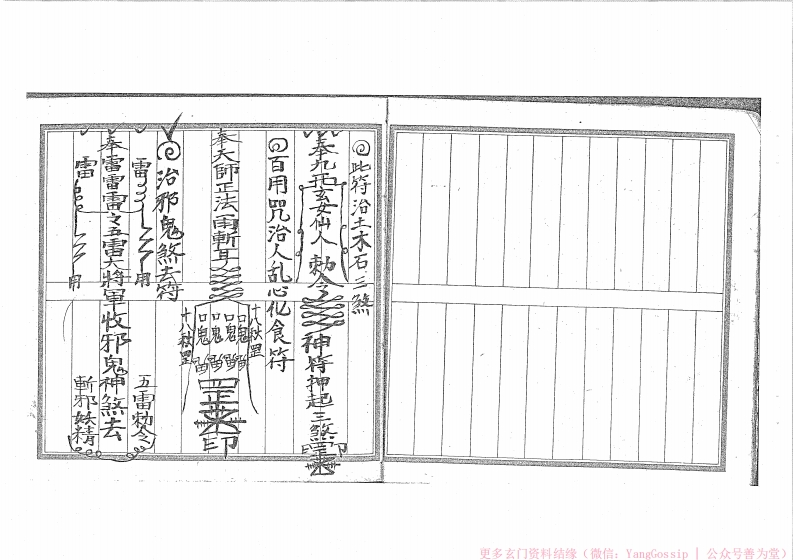 此符治土木石三煞
奉九天玄女仙人勅令神符押起三煞罡
百用咒治人乱心化食符
奉天師正法雨斬耳
十八秋罡
口鬼
口鬼
口鬼
口鬼
十八秋罡
罡
印
治邪鬼煞去符
雷
用
五雷勅令
奉雷雷雷々五雷大將軍收邪鬼神煞去
雷
用
斬邪妖精
更多玄门资料结缘（微信：YangGossip | 公众号善为堂）